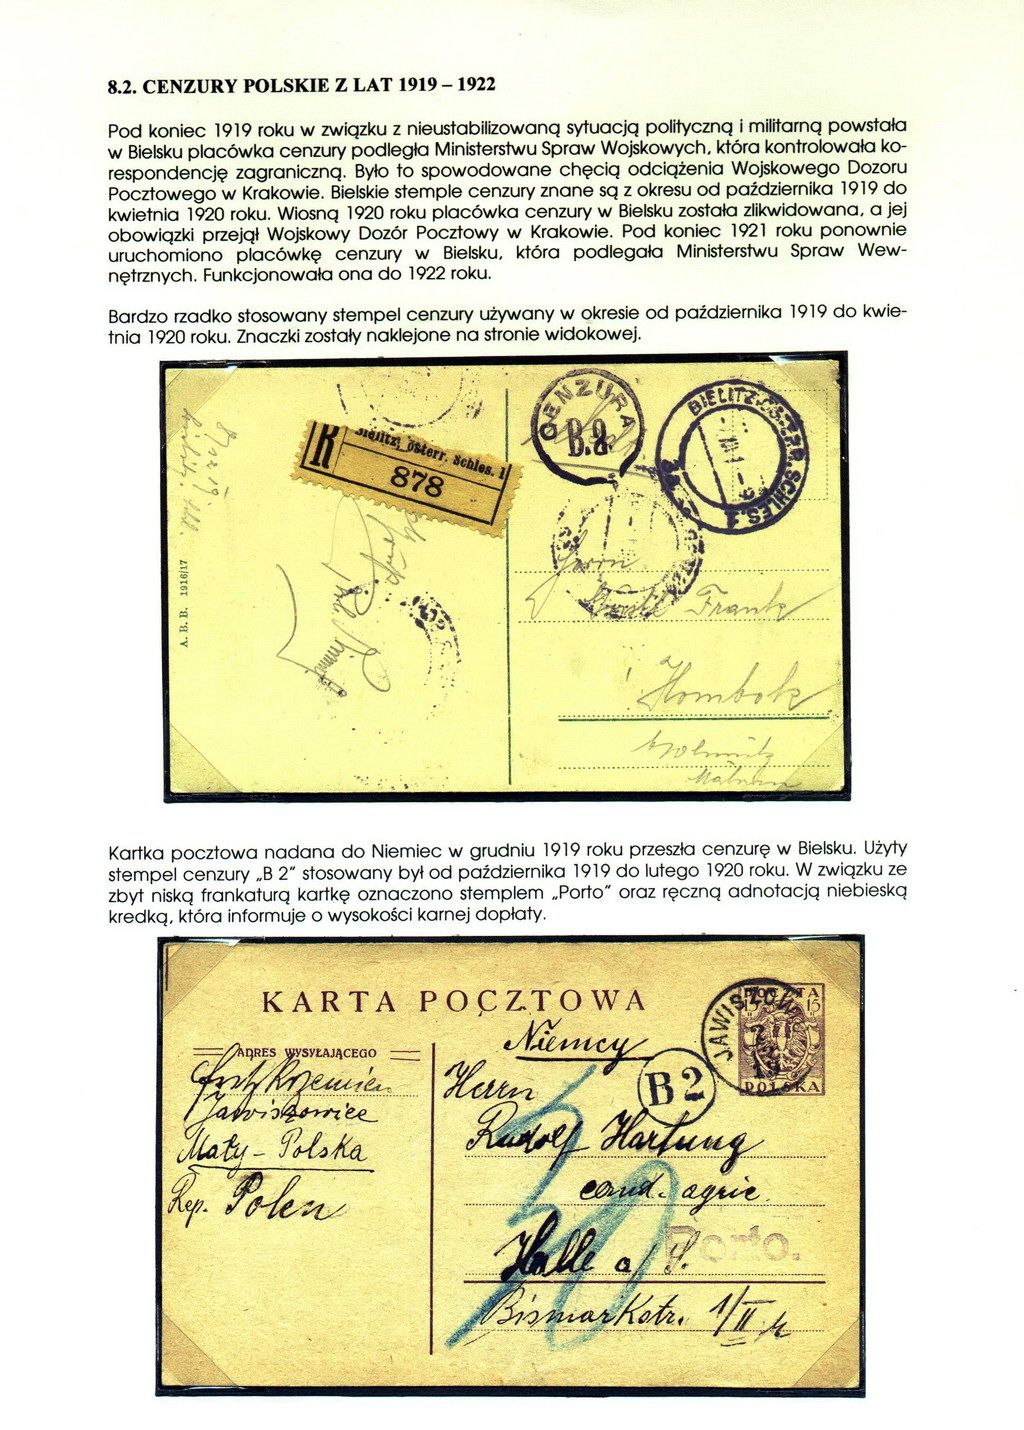 8.2. CENZURY POLSKIE Z LAT 1919 – 1922
Pod koniec 1919 roku w związku z nieustabilizowaną sytuacją polityczną i militarną powstała
w Bielsku placówka cenzury podległa Ministerstwu Spraw Wojskowych, która kontrolowała ko-
respondencję zagraniczną. Było to spowodowane chęcią odciążenia Wojskowego Dozoru
Pocztowego w Krakowie. Bielskie stemple cenzury znane są z okresu od października 1919 do
kwietnia 1920 roku. Wiosną 1920 roku placówka cenzury w Bielsku została zlikwidowana, a jej
obowiązki przejął Wojskowy Dozór Pocztowy w Krakowie. Pod koniec 1921 roku ponownie
uruchomiono placówkę cenzury w Bielsku, która podlegała Ministerstwu Spraw Wew-
nętrznych. Funkcjonowała ona do 1922 roku.
Bardzo rzadko stosowany stempel cenzury używany w okresie od października 1919 do kwie-
tnia 1920 roku. Znaczki zostały naklejone na stronie widokowej.
CENZURA
B.2.
BIELITZ
SCHLES. 1
R
Bielitz, österr. Schles. 1
878
A. B. B. 1916/17
Herrn
Frank
Hombok
Kartka pocztowa nadana do Niemiec w grudniu 1919 roku przeszła cenzurę w Bielsku. Użyty
stempel cenzury „B 2” stosowany był od października 1919 do lutego 1920 roku. W związku ze
zbyt niską frankaturą kartkę oznaczono stemplem „Porto” oraz ręczną adnotacją niebieską
kredką, która informuje o wysokości karnej dopłaty.
KARTA POCZTOWA
POCZTA
15 15
POLSKA
JAWISZOWICE
Niemcy
B2
ADRES WYSYŁAJĄCEGO
Jawiszowice
Mały - Polska
Rep. Polen
Herrn
Rudolf Hartung
cand. agric.
Halle a/S.
Porto.
Bismarkstr. 1/II